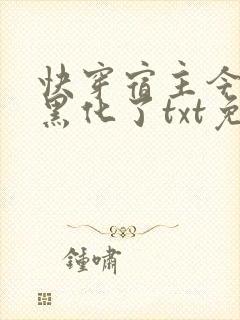 快穿宿主今
黑化了txt免
鍾嘯